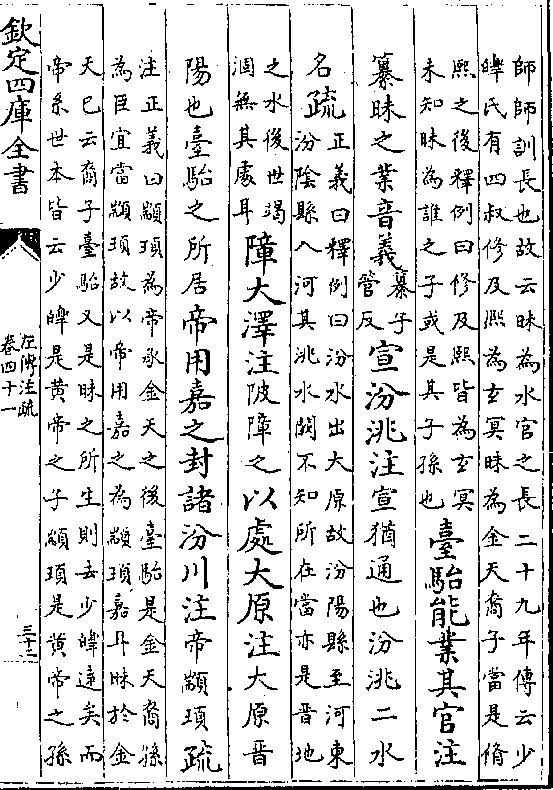 師師訓長也故云昧為水官之長二十九年傳云少
皥氏有四叔修及熈為玄冥昧為金天裔子當是脩
熙之後釋例曰修及熈皆為玄冥
未知昧為誰之子或是其子孫也
臺駘能業其官注
纂昧之業音義
纂子
管反
宣汾洮注宣猶通也汾洮二水
名疏
正義曰釋例曰汾水出大原故汾陽縣至河東
汾陰縣入河其洮水闕不知所在當亦是晉地
之水後世竭
涸無其處耳
障大澤注陂障之以處大原注大原晉
陽也臺駘之所居帝用嘉之封諸汾川注帝顓頊疏
注正義曰顓頊為帝承金天之後臺駘是金天裔孫
為臣宜當顓頊故以帝用嘉之為顓頊嘉耳昧於金
天巳云裔子臺駘又是昧之所生則去少皥遠矣而
帝系世本皆云少皥是黄帝之子顓頊是黄帝之孫
欽定四庫全書
左傳注疏
卷四十一
三十二